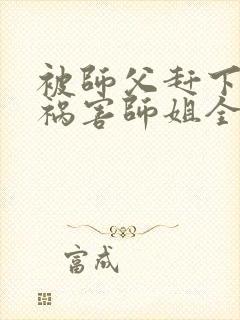 被師父赶下
祸害師姐全
富成